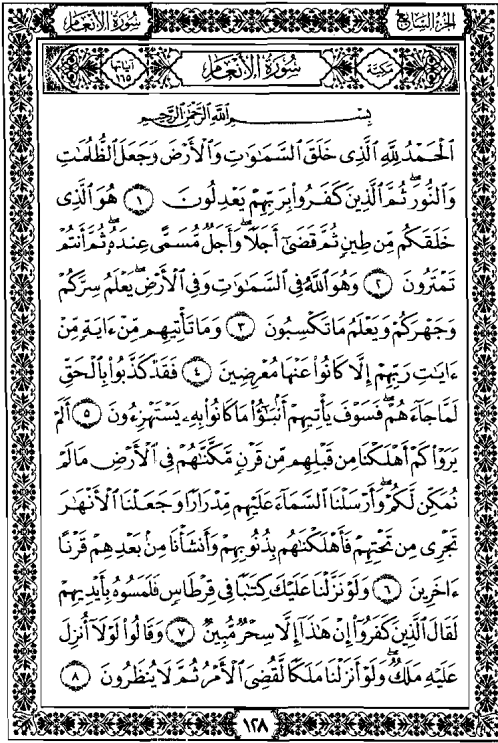 الجزء السابع
سورة الأنعام
مكية
سُورَةُ الأَنْعَامِ
آياتها ١٦٥
بِسْمِ ٱللَّهِ ٱلرَّحْمَٰنِ ٱلرَّحِيمِ
ٱلْحَمْدُ لِلَّهِ ٱلَّذِى خَلَقَ ٱلسَّمَٰوَٰتِ وَٱلْأَرْضَ وَجَعَلَ ٱلظُّلُمَٰتِ
وَٱلنُّورَ ۖ ثُمَّ ٱلَّذِينَ كَفَرُوا۟ بِرَبِّهِمْ يَعْدِلُونَ ١ هُوَ ٱلَّذِى
خَلَقَكُم مِّن طِينٍ ثُمَّ قَضَىٰٓ أَجَلًا ۖ وَأَجَلٌ مُّسَمًّى عِندَهُۥ ۖ ثُمَّ أَنتُمْ
تَمْتَرُونَ ٢ وَهُوَ ٱللَّهُ فِى ٱلسَّمَٰوَٰتِ وَفِى ٱلْأَرْضِ ۖ يَعْلَمُ سِرَّكُمْ
وَجَهْرَكُمْ وَيَعْلَمُ مَا تَكْسِبُونَ ٣ وَمَا تَأْتِيهِم مِّنْ ءَايَةٍ مِّنْ
ءَايَٰتِ رَبِّهِمْ إِلَّا كَانُوا۟ عَنْهَا مُعْرِضِينَ ٤ فَقَدْ كَذَّبُوا۟ بِٱلْحَقِّ
لَمَّا جَآءَهُمْ ۖ فَسَوْفَ يَأْتِيهِمْ أَنۢبَٰٓؤُا۟ مَا كَانُوا۟ بِهِۦ يَسْتَهْزِءُونَ ٥ أَلَمْ
يَرَوْا۟ كَمْ أَهْلَكْنَا مِن قَبْلِهِم مِّن قَرْنٍ مَّكَّنَّٰهُمْ فِى ٱلْأَرْضِ مَا لَمْ
نُمَكِّن لَّكُمْ وَأَرْسَلْنَا ٱلسَّمَآءَ عَلَيْهِم مِّدْرَارًا وَجَعَلْنَا ٱلْأَنْهَٰرَ
تَجْرِى مِن تَحْتِهِمْ فَأَهْلَكْنَٰهُم بِذُنُوبِهِمْ وَأَنشَأْنَا مِنۢ بَعْدِهِمْ قَرْنًا
ءَاخَرِينَ ٦ وَلَوْ نَزَّلْنَا عَلَيْكَ كِتَٰبًا فِى قِرْطَاسٍ فَلَمَسُوهُ بِأَيْدِيهِمْ
لَقَالَ ٱلَّذِينَ كَفَرُوٓا۟ إِنْ هَٰذَآ إِلَّا سِحْرٌ مُّبِينٌ ٧ وَقَالُوا۟ لَوْلَآ أُنزِلَ
عَلَيْهِ مَلَكٌ ۖ وَلَوْ أَنزَلْنَا مَلَكًا لَّقُضِىَ ٱلْأَمْرُ ثُمَّ لَا يُنظَرُونَ ٨
١٢٨